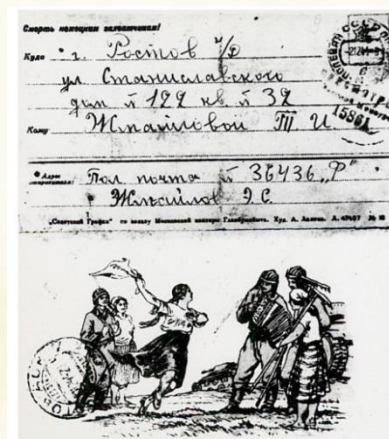 Смерть немецким захватчикам!
Куда г. Ростов н/Д
ул. Станиславского
дом № 122 кв. № 32
Кому Жмайловой Т. И
Адрес отправителя: Пол. почта № 36436 „Р“
Жмайлов Э. С.
„Советский График“ по заказу Московской конторы Главбумсбыта. Худ. А.
15861